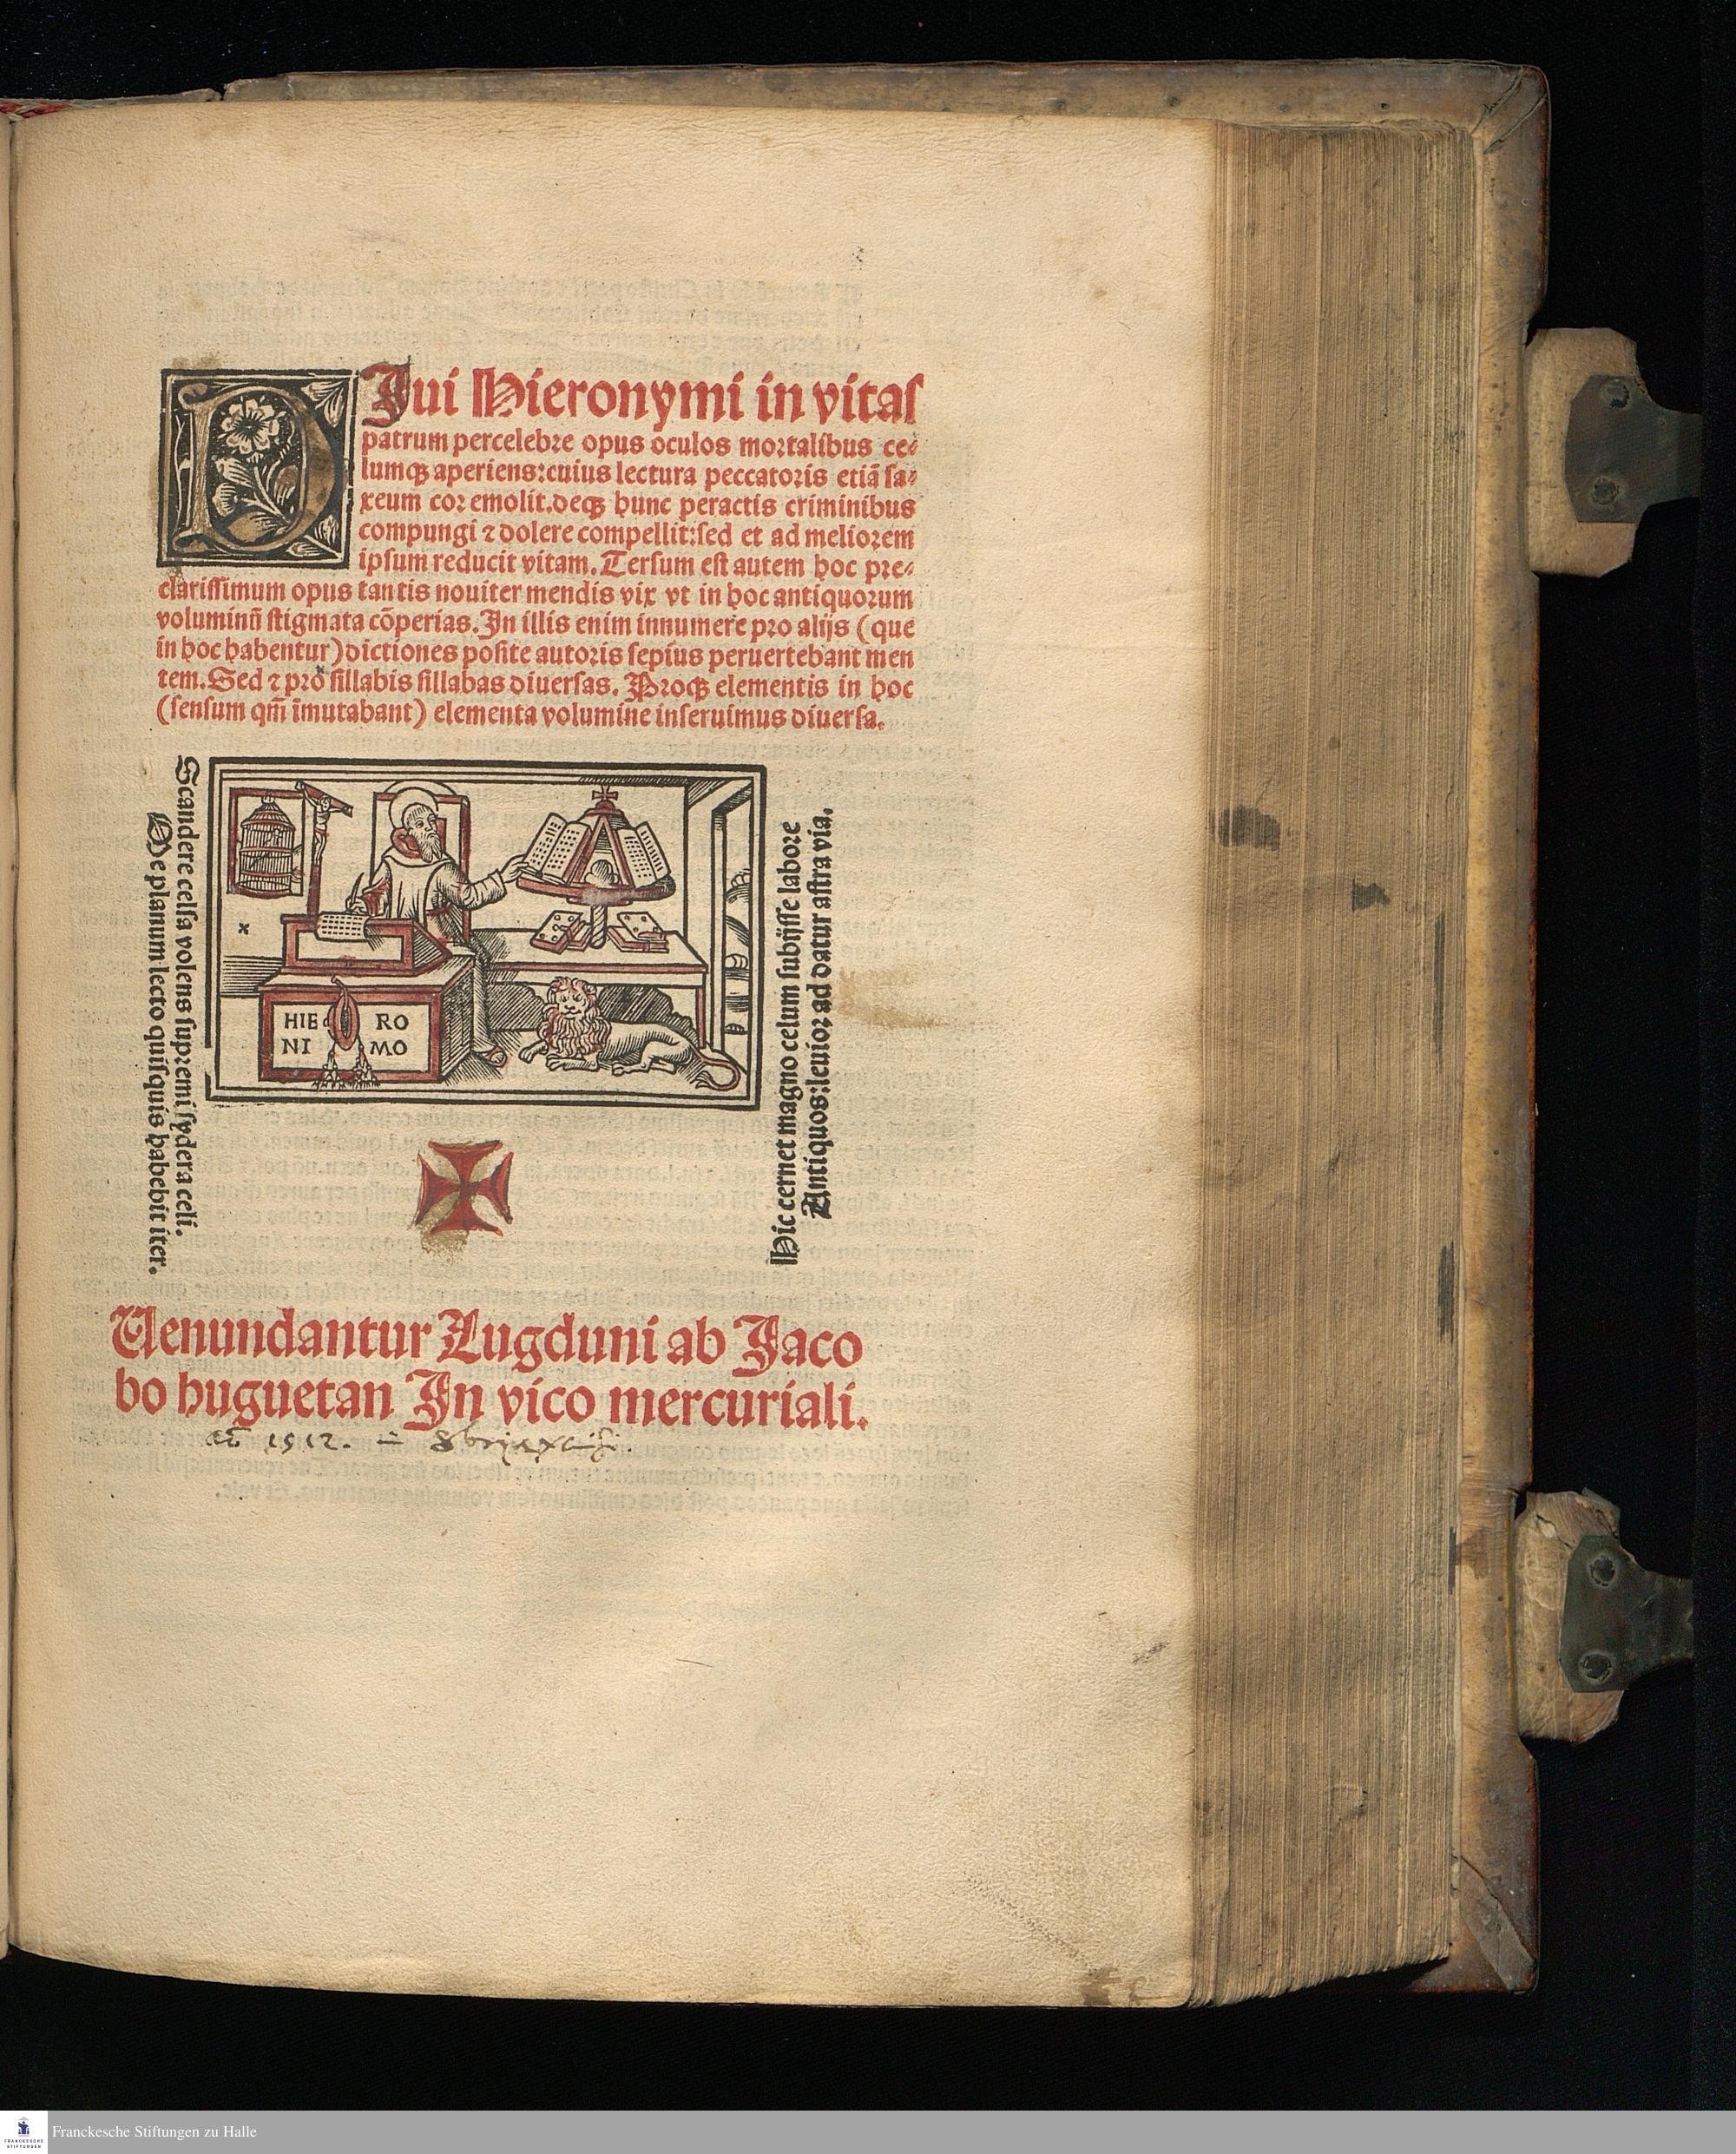 DIui Hieronymi in vitas
patrum percelebre opus oculos mortalibus ce⸗
lumqꝫ aperiens:cuius lectura peccatoris etiā sa⸗
xeum cor emolit.deqꝫ hunc peractis criminibus
compungi ⁊ dolere compellit:sed et ad meliorem
ipsum reducit vitam. Tersum est autem hoc pre⸗
clarissimum opus tantis nouiter mendis vix vt in hoc antiquorum
voluminū stigmata cōperias. In illis enim innumere pro alijs (que
in hoc habentur) dictiones posite autoris sepius peruertebant men
tem. Sed ⁊ pro sillabis sillabas diuersas. Proqꝫ elementis in hoc
(sensum qm̄ īmutabant) elementa volumine inseruimus diuersa.
Scandere celsa volens supremi sydera celi.
De planum lecto quisquis habebit iter.
HIE RO
NI MO
Hic cernet magno celum subijsse labore
Antiquos:leuior ad datur astra via.
Uenundantur Lugduni ab Jaco
bo huguetan In vico mercuriali.
1512.
Franckesche Stiftungen zu Halle
FRANCKESCHE
STIFTUNGEN